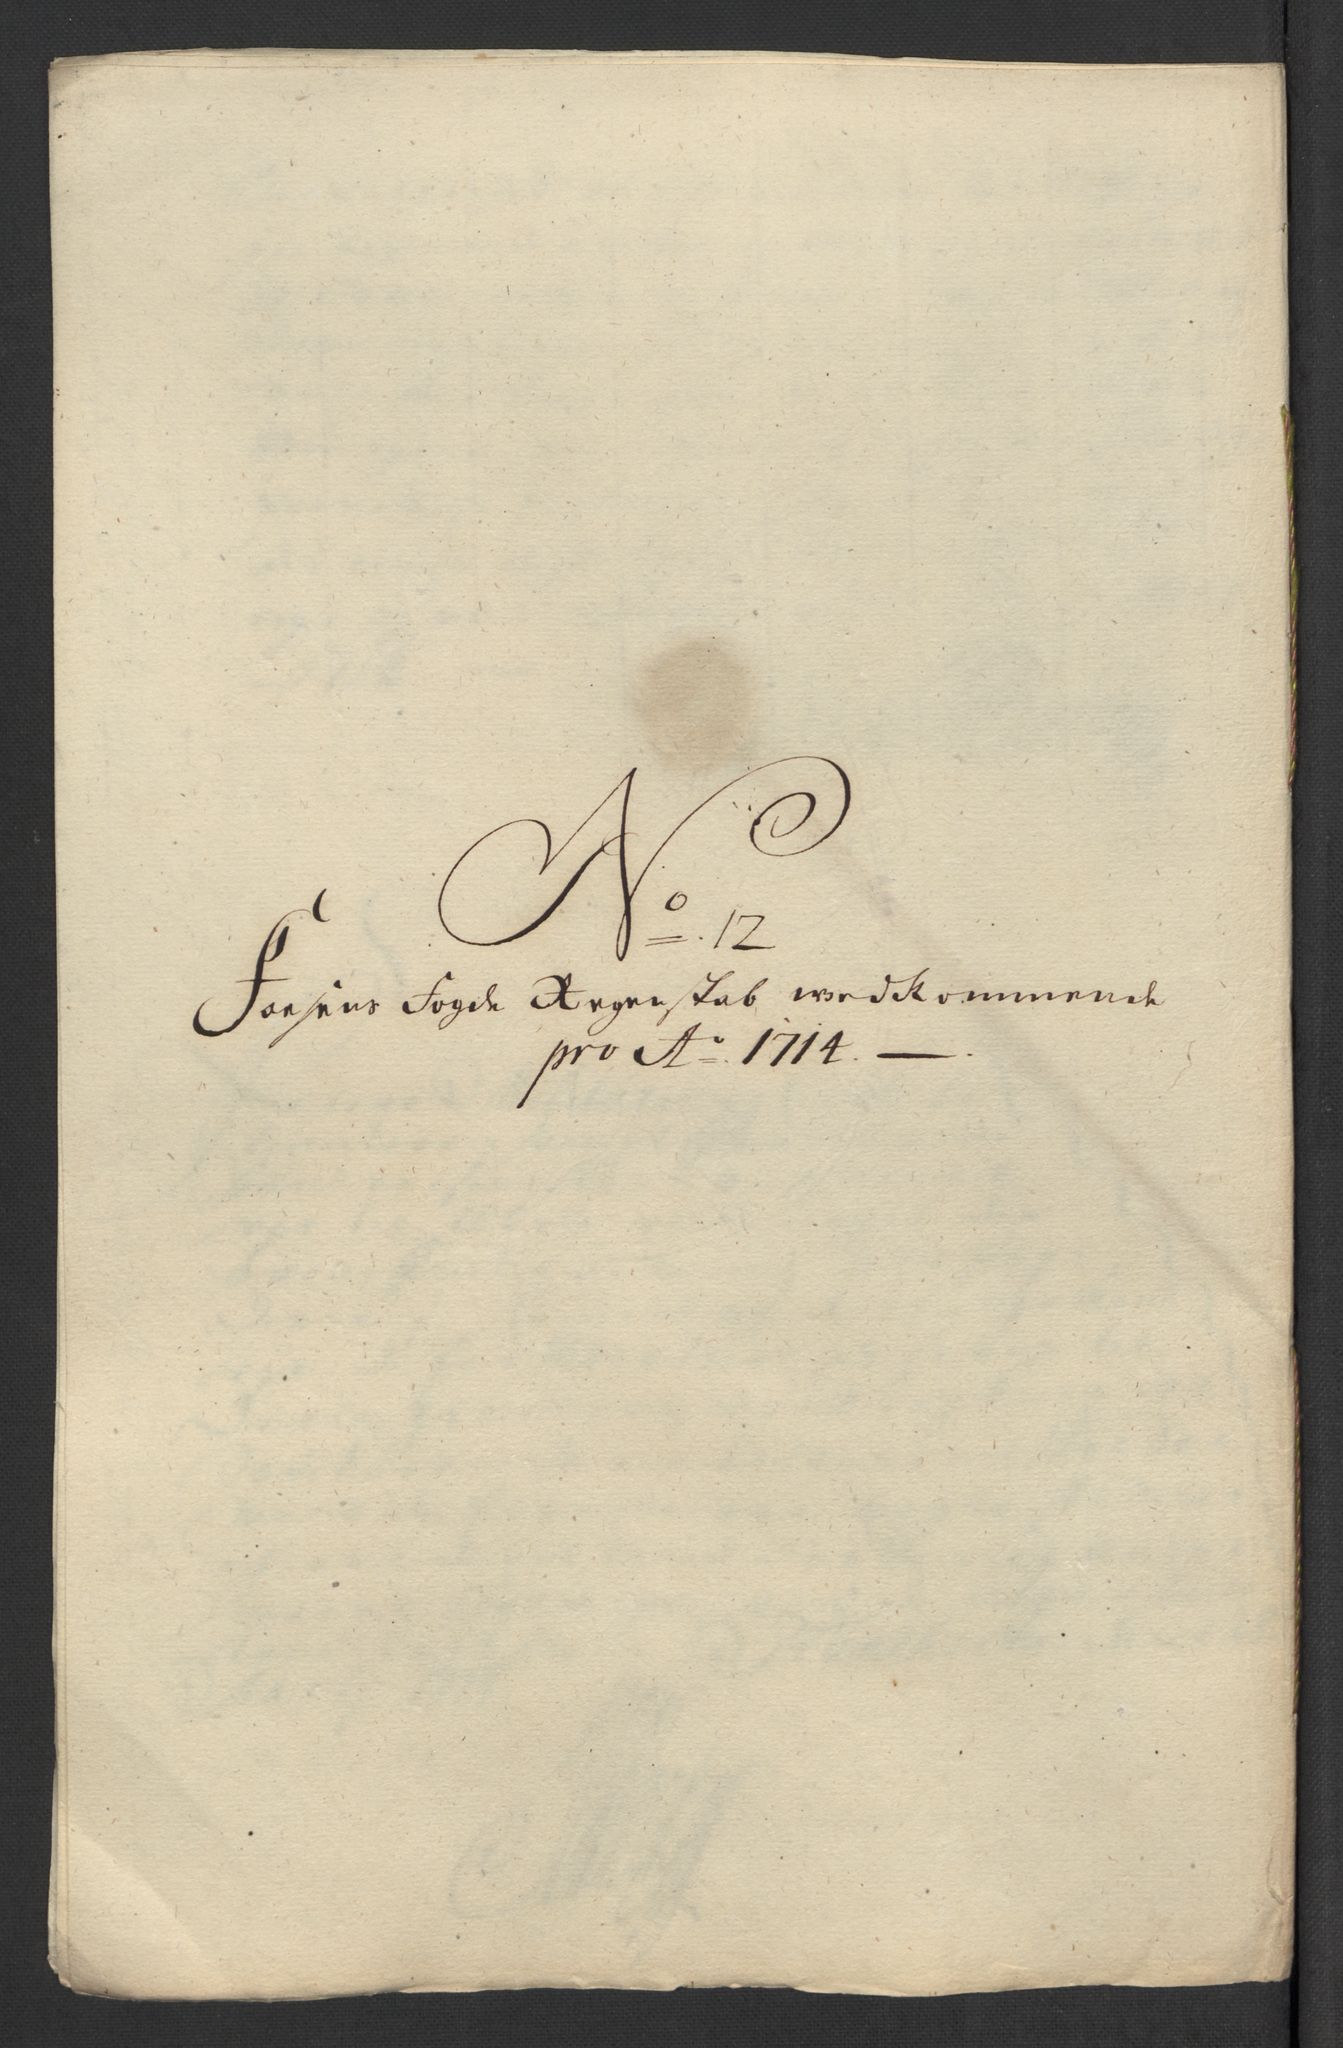 No. 12
Foesens Fogde Regenskab wedkommende
pro Ao. 1714. —